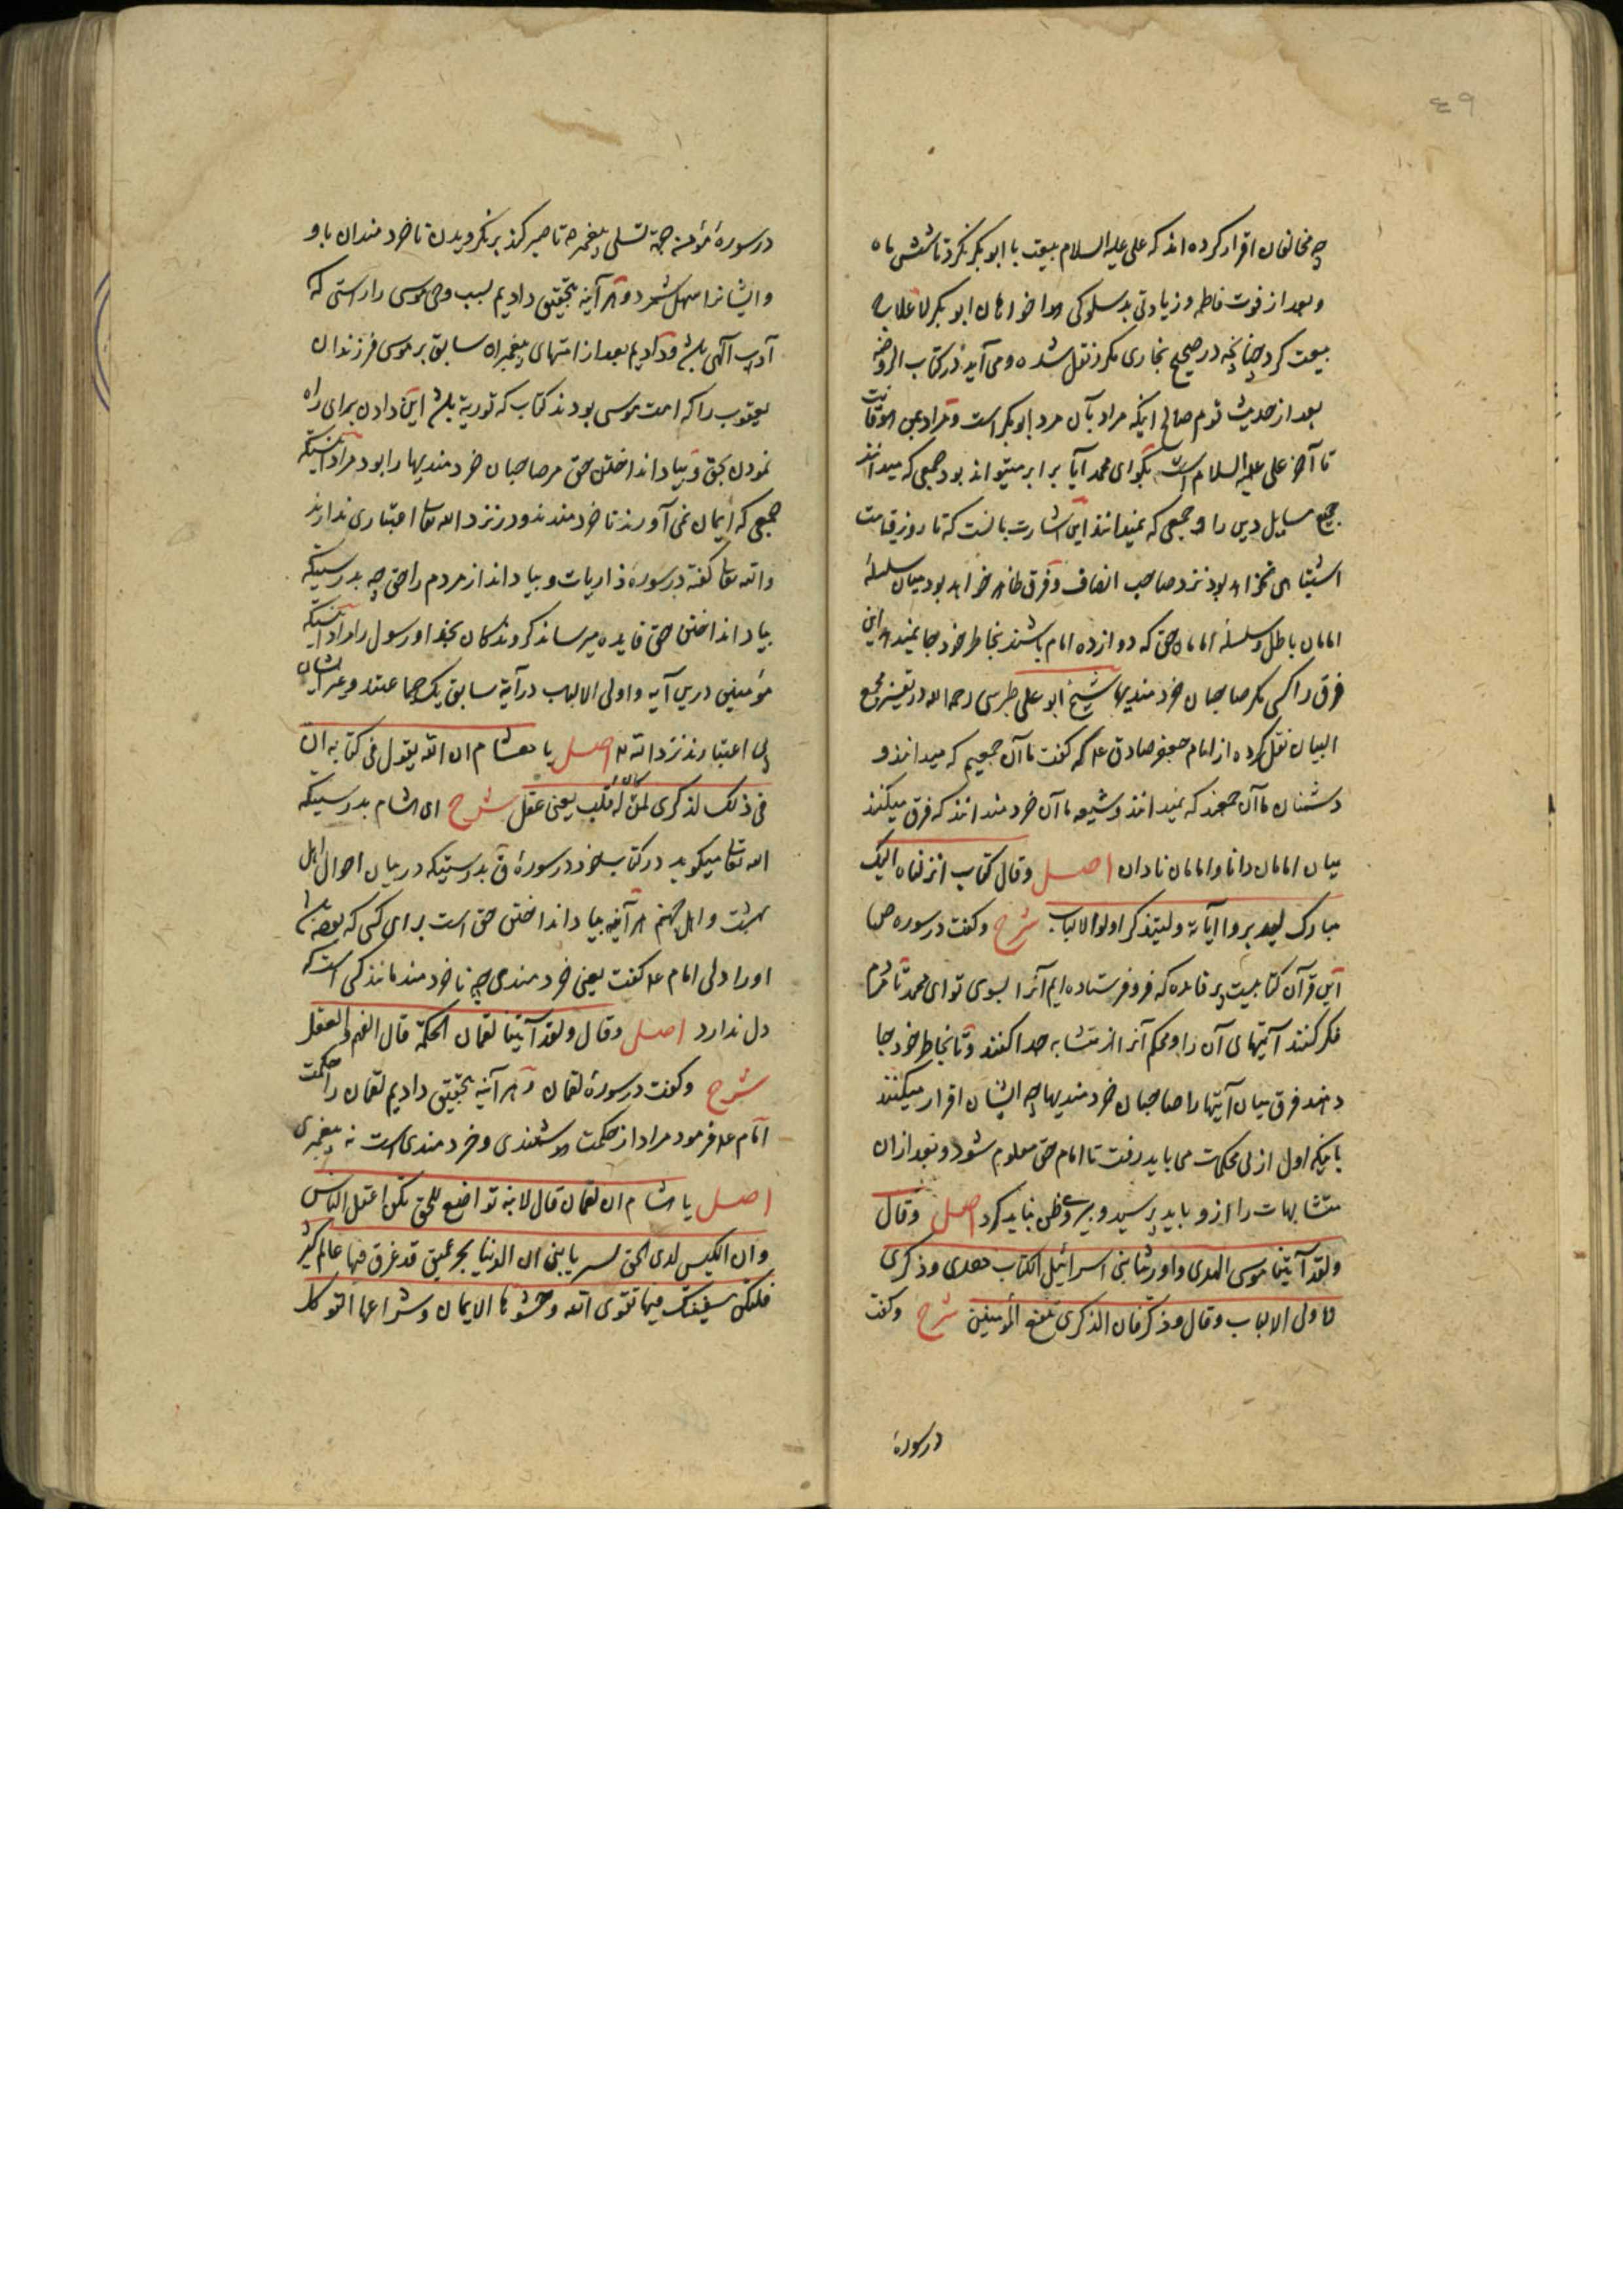 ٤٩
چه مخالفان اقرار کرده اند که علی علیه السلام بیعت با ابو بکر نکرد تا شش ماه
و بعد از فوت فاطمه و زیادتی بدسلوکی هواخواهان ابو بکر لاعلاج
بیعت کرد چنانچه در صحیح بخاری مکرر نقل شده و می آید در کتاب الروضه
بعد از حدیث قوم صالح اینکه مراد بآن مرد ابو بکر است و مراد بمن هو قانت
تا آخر علی علیه السلام است بگو ای محمد آیا برابر میتواند بود جمعی که میدانند
جمیع مسایل دین را و جمعی که نمیدانند این اشارت بآنست که تا روز قیامت
اشتباهی نخواهد بود نزد صاحب انصاف و فرق ظاهر خواهد بود میان سلسلهٔ
امامان باطل و سلسلهٔ امامان حق که دوازده امام باشند بخاطر خود جا نمیدهد این
فرق را کسی مگر صاحبان خردمندیها شیخ ابو علی طبرسی رحمه الله در تفسیر مجمع
البیان نقل کرده از امام جعفر صادق ع که گفت ما آن جمعیم که میدانند و
دشمنان ما آن جمعند که نمیدانند و شیعه ما آن خردمندانند که فرق میکنند
میان امامان دانا و امامان نادان اصل وقال کتاب انزلناه الیک
مبارک لیدبروا آیاته ولیتذکر اولو الالباب شرح و گفت در سوره ص
این قرآن کتابیست پر فایده که فرو فرستاده ایم آنرا بسوی تو ای محمد تا مردم
فکر کنند آیتهای آن را و محکم آنرا از متشابه جدا کنند و تا بخاطر خود جا
دهند فرق میان آیتها را صاحبان خردمندیها چه ایشان اقرار میکنند
باینکه اول از پی محکمات می باید رفت تا امام حق معلوم شود و بعد از ان
متشابهات را ازو باید پرسید و پیروی ظن نباید کرد اصل وقال
ولقد آتینا موسی الهدی واورثنا بنی اسرائیل الکتاب هدی وذکری
لاولی الالباب وقال وذکر فان الذکری تنفع المؤمنین شرح و گفت
در سورهٔ
در سورهٔ مؤمن جهة تسلی پیغمبر ص تا صبر کند بر نگرویدن ناخردمندان باو
و ایشانرا سهل شمرد و هر آینه بتحقیق دادیم بسبب وحی موسی را راستی که
آداب الهی باشد و دادیم بعد از انتهای پیغمبران سابق بر موسی فرزندان
یعقوب را که امت موسی بودند کتاب که توریة باشد این دادن برای راه
نمودن بحق و بیاد انداختن حق مر صاحبان خردمندیها را بود مراد آنستکه
جمعی که ایمان نمی آورند ناخردمندند و در نزد الله تعالی اعتباری ندارند
و الله تعالی گفته در سورهٔ ذاریات و بیاد انداز مردم را حق چه بدرستیکه
بیاد انداختن حق فایده میرساند گروندگان بخدا و رسول را مراد آنستکه
مؤمنین درین آیه و اولی الالباب در آیهٔ سابق یک جماعتند و غیر ایشان
بی اعتبارند نزد الله تعالی اصل یا هشام ان الله یقول فی کتابه ان
فی ذلک لذکری لمن کان له قلب یعنی عقل شرح ای هشام بدرستیکه
الله تعالی میگوید در کتاب خود در سورهٔ ق بدرستیکه در بیان احوال اهل
بهشت و اهل جهنم هر آینه بیاد انداختن حق است برای کسی که بوده باشد
او را دلی امام ع گفت یعنی خردمندی چه ناخردمند مانند کسی است که
دل ندارد اصل وقال ولقد آتینا لقمان الحکمة قال الفهم والعقل
شرح و گفت در سورهٔ لقمان و هر آینه بتحقیق دادیم لقمان را حکمت
امام ع فرمود مراد از حکمت هوشمندی و خردمندی است نه پیغمبری
اصل یا هشام ان لقمان قال لابنه تواضع للحق تکن اعقل الناس
وان الکیس لدی الحق یسیر یا بنی ان الدنیا بحر عمیق قد غرق فیها عالم کثیر
فلتکن سفینتک فیها تقوی الله وحشوها الایمان وشراعها التوکل